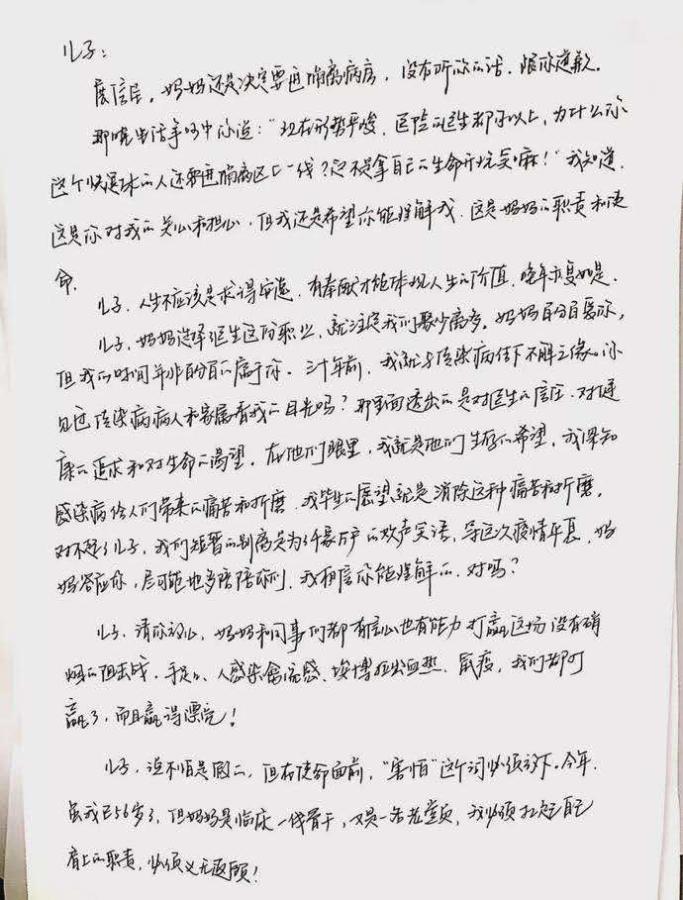 儿子：
展信居，妈妈还是决定要进隔离病房，没有听你的话，跟你道歉。
那晚电话争吵中你道：“现在形势严峻，医院的医生都可以上，为什么你
这个快退休的人还要进隔离区上一线？这不是拿自己的生命开玩笑嘛！”我知道，
这是你对我的关心和担心，但我还是希望你能理解我，这是妈妈的职责和使
命。
儿子，人生不应该是求得安逸，有奉献才能体现人生的价值，晚年亦复如是。
儿子，妈妈选择医生这份职业，就注定我们聚少离多。妈妈百分百爱你，
但我的时间并非百分百属于你。三十年前，我就与传染病结下不解之缘。你
见过传染病病人和家属看我的目光吗？那里面透出的是对医生的信任、对健
康的追求和对生命的渴望。在他们眼里，我就是他们生存的希望，我深知
感染病给人们带来的痛苦和折磨，我毕生的愿望就是消除这种痛苦和折磨。
对不起了儿子，我们短暂的别离是为了千家万户的欢声笑语，等这次疫情平息，妈
妈答应你，尽可能地多陪陪你们，我相信你能理解的，对吗？
儿子，请你放心，妈妈和同事们都有信心也有能力打赢这场没有硝
烟的阻击战。手足口、人感染禽流感、埃博拉出血热、鼠疫，我们都打
赢了，而且赢得漂亮！
儿子，说不怕是假的，但在使命面前，“害怕”这个词必须放下。今年，
虽我已56岁了，但妈妈是临床一线骨干，又是一名老党员，我必须扛起自己
肩上的职责，必须义无返顾！